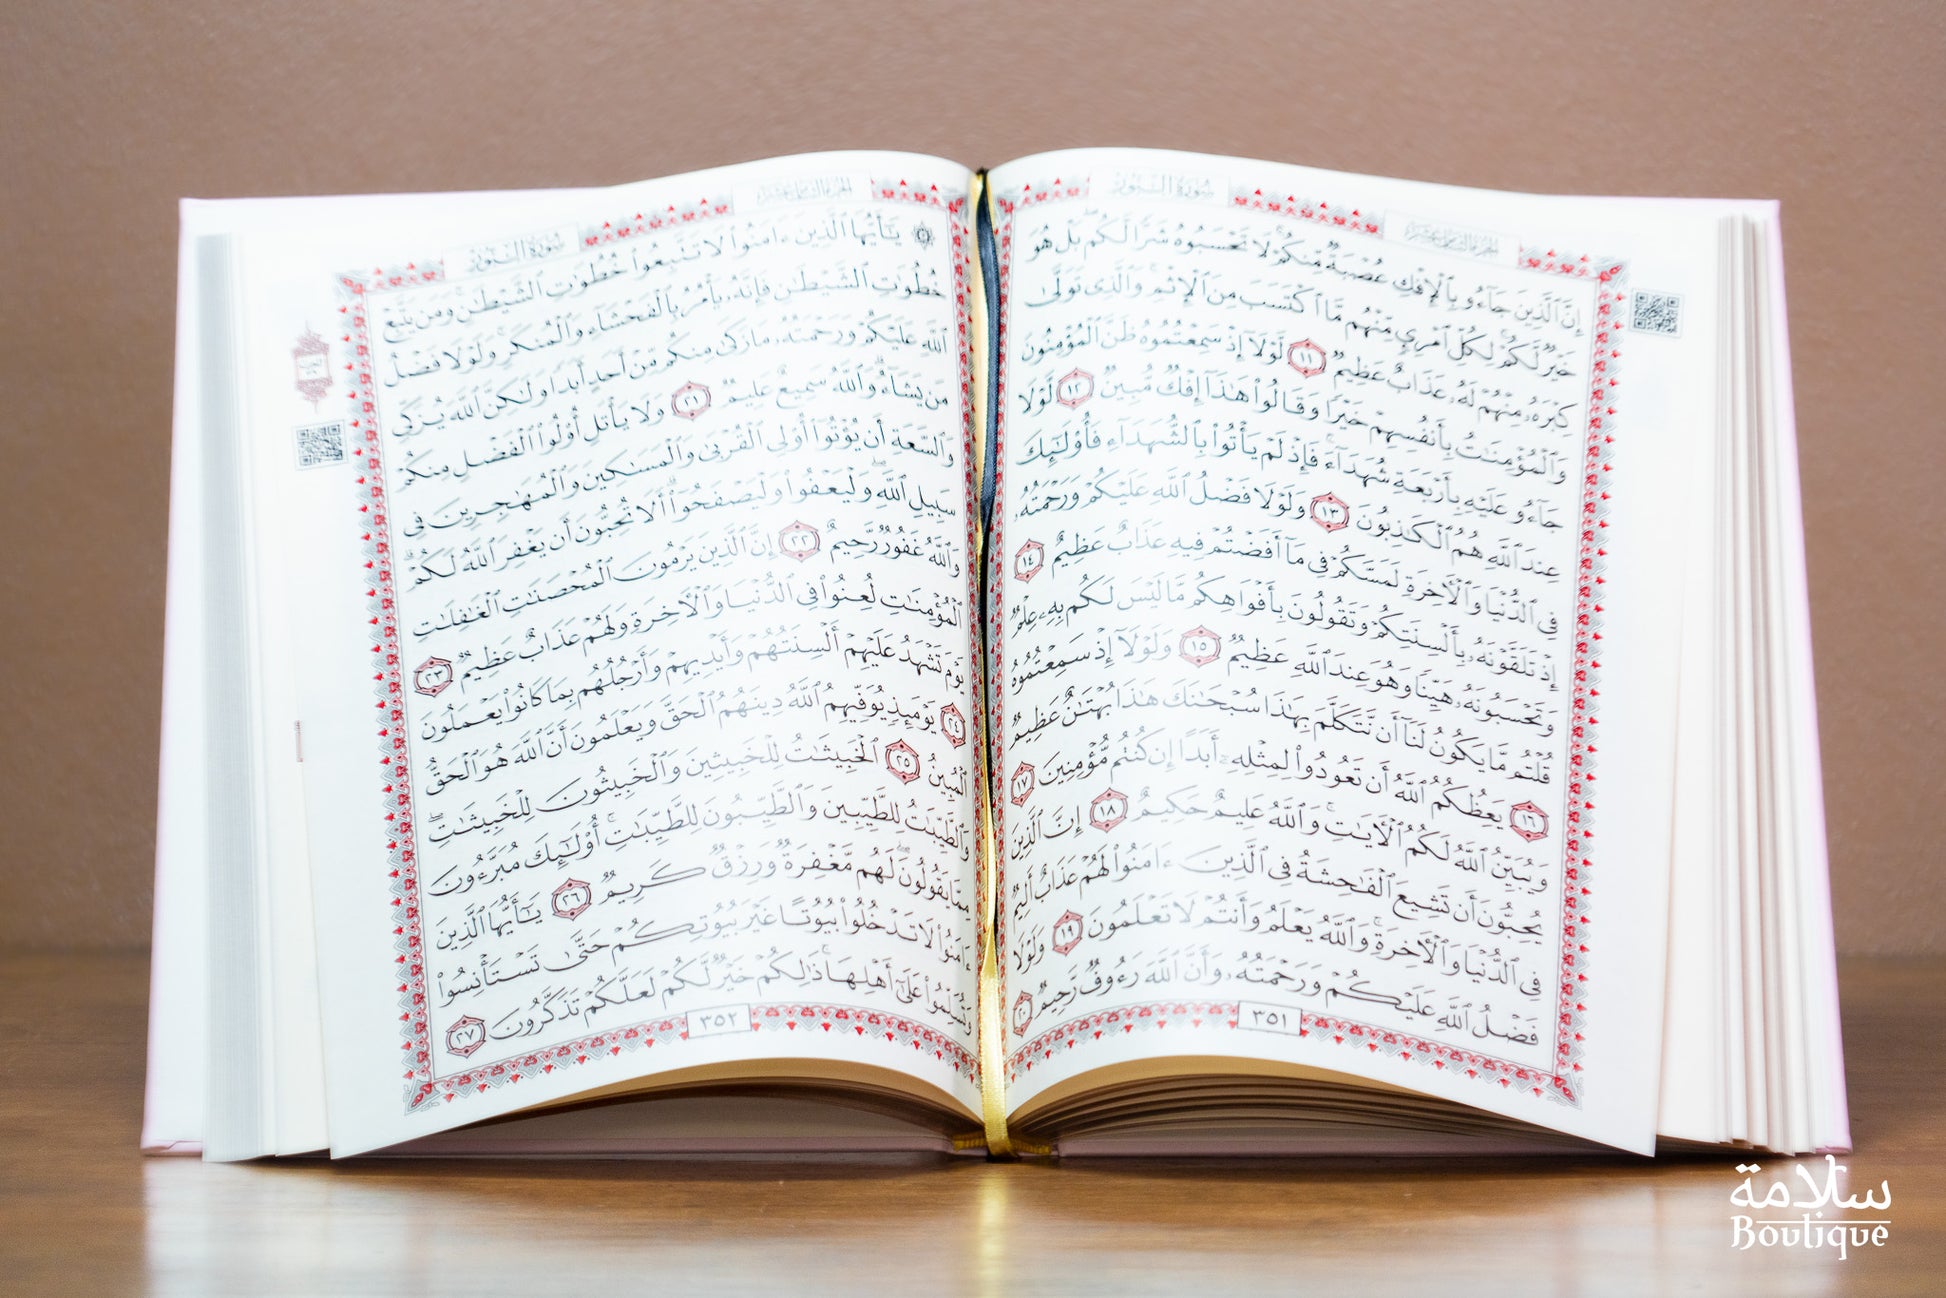 سُورَةُ النُّورِ
الجزء الثامن عشر
إِنَّ ٱلَّذِينَ جَآءُو بِٱلْإِفْكِ عُصْبَةٌ مِّنكُمْ ۚ لَا تَحْسَبُوهُ شَرًّا لَّكُم ۖ بَلْ هُوَ
خَيْرٌ لَّكُمْ ۚ لِكُلِّ ٱمْرِئٍ مِّنْهُم مَّا ٱكْتَسَبَ مِنَ ٱلْإِثْمِ ۚ وَٱلَّذِى تَوَلَّىٰ
كِبْرَهُۥ مِنْهُمْ لَهُۥ عَذَابٌ عَظِيمٌ ١١ لَّوْلَآ إِذْ سَمِعْتُمُوهُ ظَنَّ ٱلْمُؤْمِنُونَ
وَٱلْمُؤْمِنَٰتُ بِأَنفُسِهِمْ خَيْرًا وَقَالُوا۟ هَٰذَآ إِفْكٌ مُّبِينٌ ١٢ لَّوْلَا
جَآءُو عَلَيْهِ بِأَرْبَعَةِ شُهَدَآءَ ۚ فَإِذْ لَمْ يَأْتُوا۟ بِٱلشُّهَدَآءِ فَأُو۟لَٰٓئِكَ
عِندَ ٱللَّهِ هُمُ ٱلْكَٰذِبُونَ ١٣ وَلَوْلَا فَضْلُ ٱللَّهِ عَلَيْكُمْ وَرَحْمَتُهُۥ
فِى ٱلدُّنْيَا وَٱلْءَاخِرَةِ لَمَسَّكُمْ فِى مَآ أَفَضْتُمْ فِيهِ عَذَابٌ عَظِيمٌ ١٤
إِذْ تَلَقَّوْنَهُۥ بِأَلْسِنَتِكُمْ وَتَقُولُونَ بِأَفْوَاهِكُم مَّا لَيْسَ لَكُم بِهِۦ عِلْمٌ
وَتَحْسَبُونَهُۥ هَيِّنًا وَهُوَ عِندَ ٱللَّهِ عَظِيمٌ ١٥ وَلَوْلَآ إِذْ سَمِعْتُمُوهُ
قُلْتُم مَّا يَكُونُ لَنَآ أَن نَّتَكَلَّمَ بِهَٰذَا سُبْحَٰنَكَ هَٰذَا بُهْتَٰنٌ عَظِيمٌ
١٦ يَعِظُكُمُ ٱللَّهُ أَن تَعُودُوا۟ لِمِثْلِهِۦٓ أَبَدًا إِن كُنتُم مُّؤْمِنِينَ ١٧
وَيُبَيِّنُ ٱللَّهُ لَكُمُ ٱلْءَايَٰتِ ۚ وَٱللَّهُ عَلِيمٌ حَكِيمٌ ١٨ إِنَّ ٱلَّذِينَ
يُحِبُّونَ أَن تَشِيعَ ٱلْفَٰحِشَةُ فِى ٱلَّذِينَ ءَامَنُوا۟ لَهُمْ عَذَابٌ أَلِيمٌ
فِى ٱلدُّنْيَا وَٱلْءَاخِرَةِ ۚ وَٱللَّهُ يَعْلَمُ وَأَنتُمْ لَا تَعْلَمُونَ ١٩ وَلَوْلَا
فَضْلُ ٱللَّهِ عَلَيْكُمْ وَرَحْمَتُهُۥ وَأَنَّ ٱللَّهَ رَءُوفٌ رَّحِيمٌ ٢٠
٣٥١
الجزء الثامن عشر
سُورَةُ النُّورِ
۞ يَٰٓأَيُّهَا ٱلَّذِينَ ءَامَنُوا۟ لَا تَتَّبِعُوا۟ خُطُوَٰتِ ٱلشَّيْطَٰنِ ۚ وَمَن يَتَّبِعْ
خُطُوَٰتِ ٱلشَّيْطَٰنِ فَإِنَّهُۥ يَأْمُرُ بِٱلْفَحْشَآءِ وَٱلْمُنكَرِ ۚ وَلَوْلَا فَضْلُ
ٱللَّهِ عَلَيْكُمْ وَرَحْمَتُهُۥ مَا زَكَىٰ مِنكُم مِّنْ أَحَدٍ أَبَدًا وَلَٰكِنَّ ٱللَّهَ يُزَكِّى
مَن يَشَآءُ ۗ وَٱللَّهُ سَمِيعٌ عَلِيمٌ ٢١ وَلَا يَأْتَلِ أُو۟لُوا۟ ٱلْفَضْلِ مِنكُمْ
وَٱلسَّعَةِ أَن يُؤْتُوٓا۟ أُو۟لِى ٱلْقُرْبَىٰ وَٱلْمَسَٰكِينَ وَٱلْمُهَٰجِرِينَ فِى
سَبِيلِ ٱللَّهِ ۖ وَلْيَعْفُوا۟ وَلْيَصْفَحُوٓا۟ ۗ أَلَا تُحِبُّونَ أَن يَغْفِرَ ٱللَّهُ لَكُمْ ۗ
وَٱللَّهُ غَفُورٌ رَّحِيمٌ ٢٢ إِنَّ ٱلَّذِينَ يَرْمُونَ ٱلْمُحْصَنَٰتِ ٱلْغَٰفِلَٰتِ
ٱلْمُؤْمِنَٰتِ لُعِنُوا۟ فِى ٱلدُّنْيَا وَٱلْءَاخِرَةِ وَلَهُمْ عَذَابٌ عَظِيمٌ ٢٣
يَوْمَ تَشْهَدُ عَلَيْهِمْ أَلْسِنَتُهُمْ وَأَيْدِيهِمْ وَأَرْجُلُهُم بِمَا كَانُوا۟ يَعْمَلُونَ
٢٤ يَوْمَئِذٍ يُوَفِّيهِمُ ٱللَّهُ دِينَهُمُ ٱلْحَقَّ وَيَعْلَمُونَ أَنَّ ٱللَّهَ هُوَ ٱلْحَقُّ
ٱلْمُبِينُ ٢٥ ٱلْخَبِيثَٰتُ لِلْخَبِيثِينَ وَٱلْخَبِيثُونَ لِلْخَبِيثَٰتِ ۖ
وَٱلطَّيِّبَٰتُ لِلطَّيِّبِينَ وَٱلطَّيِّبُونَ لِلطَّيِّبَٰتِ ۚ أُو۟لَٰٓئِكَ مُبَرَّءُونَ
مِمَّا يَقُولُونَ ۖ لَهُم مَّغْفِرَةٌ وَرِزْقٌ كَرِيمٌ ٢٦ يَٰٓأَيُّهَا ٱلَّذِينَ
ءَامَنُوا۟ لَا تَدْخُلُوا۟ بُيُوتًا غَيْرَ بُيُوتِكُمْ حَتَّىٰ تَسْتَأْنِسُوا۟
وَتُسَلِّمُوا۟ عَلَىٰٓ أَهْلِهَا ۚ ذَٰلِكُمْ خَيْرٌ لَّكُمْ لَعَلَّكُمْ تَذَكَّرُونَ ٢٧
٣٥٢
سلامة
Boutique